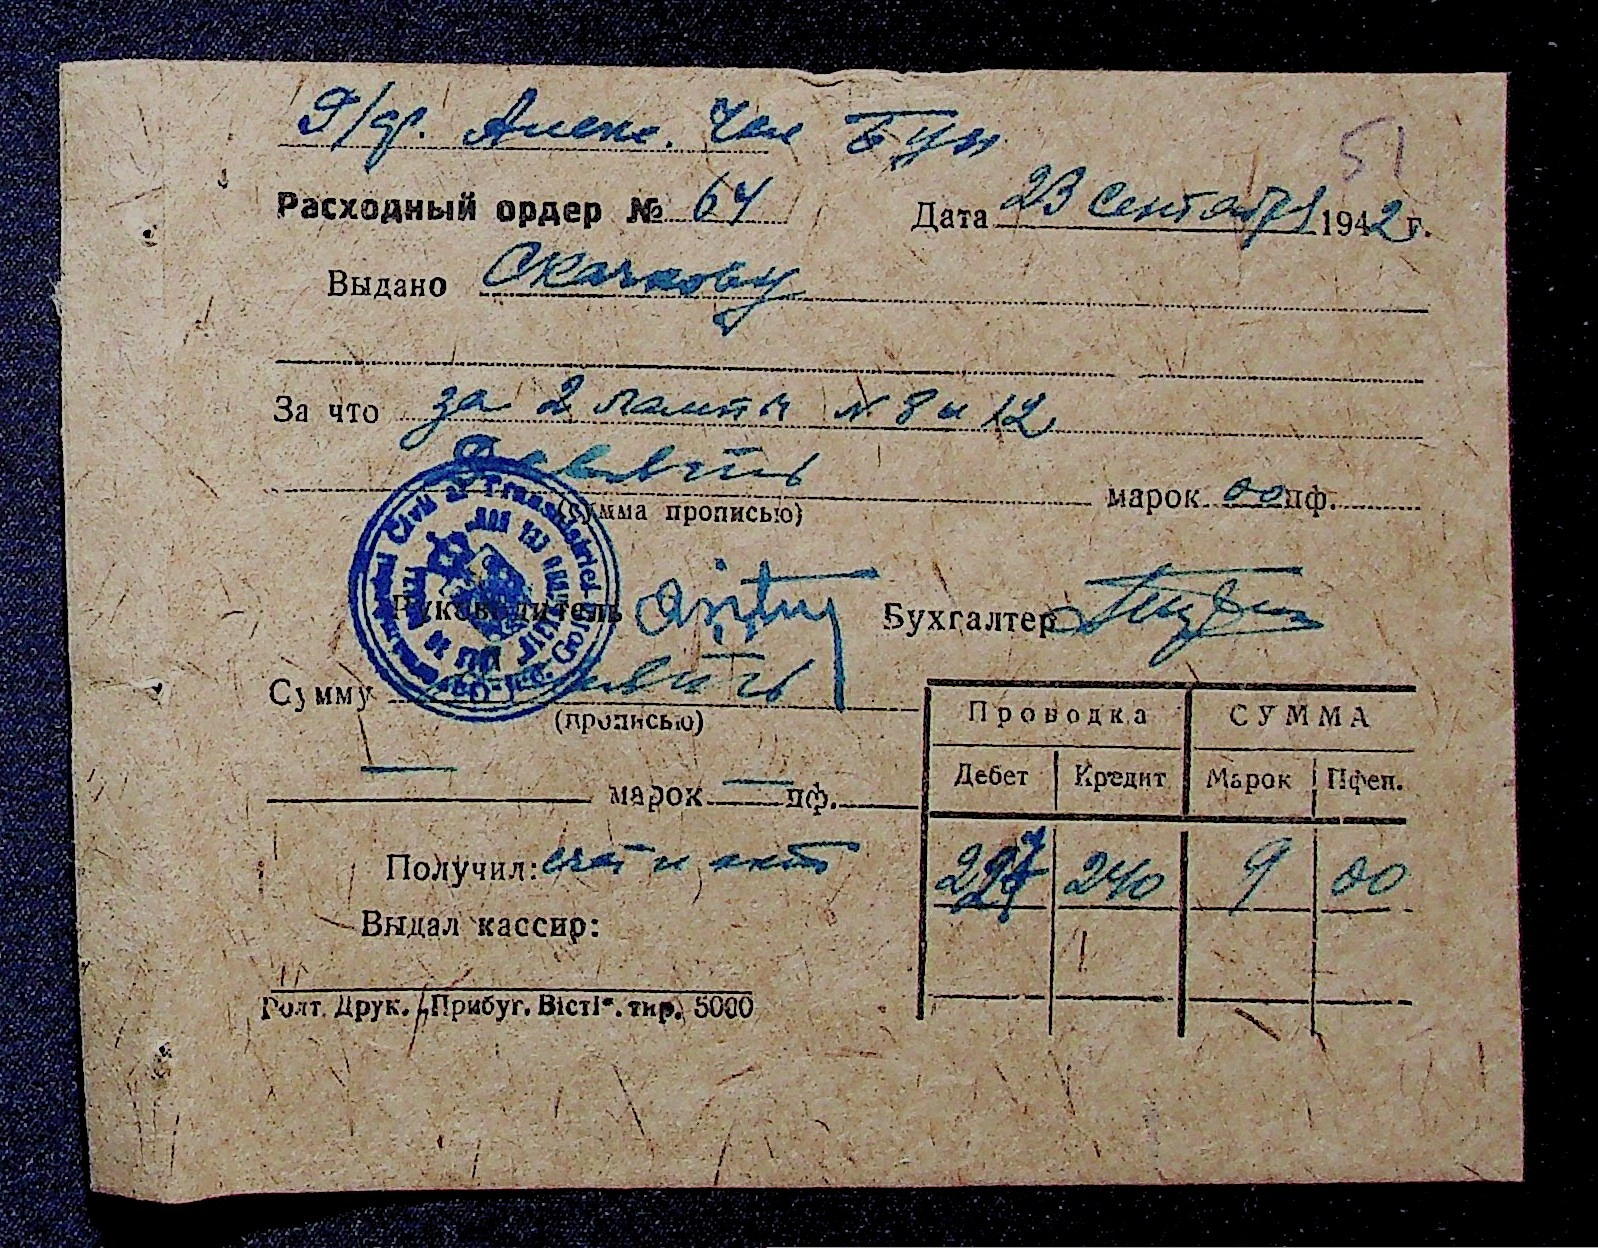 51
Расходный ордер № 64 Дата 23 Сентября 1942 г.
Выдано Скачкову
За что за 2 лампы N 8 и 12
Девять марок 00 пф.
(сумма прописью)
Руководитель Бухгалтер
Сумму Девять
(прописью)
марок — пф.
Проводка СУММА
Дебет Кредит Марок Пфен.
240 9 00
Получил: счет и акт
Выдал кассир:
Голт. Друк. „Прибуг. Вісті“. тир. 5000